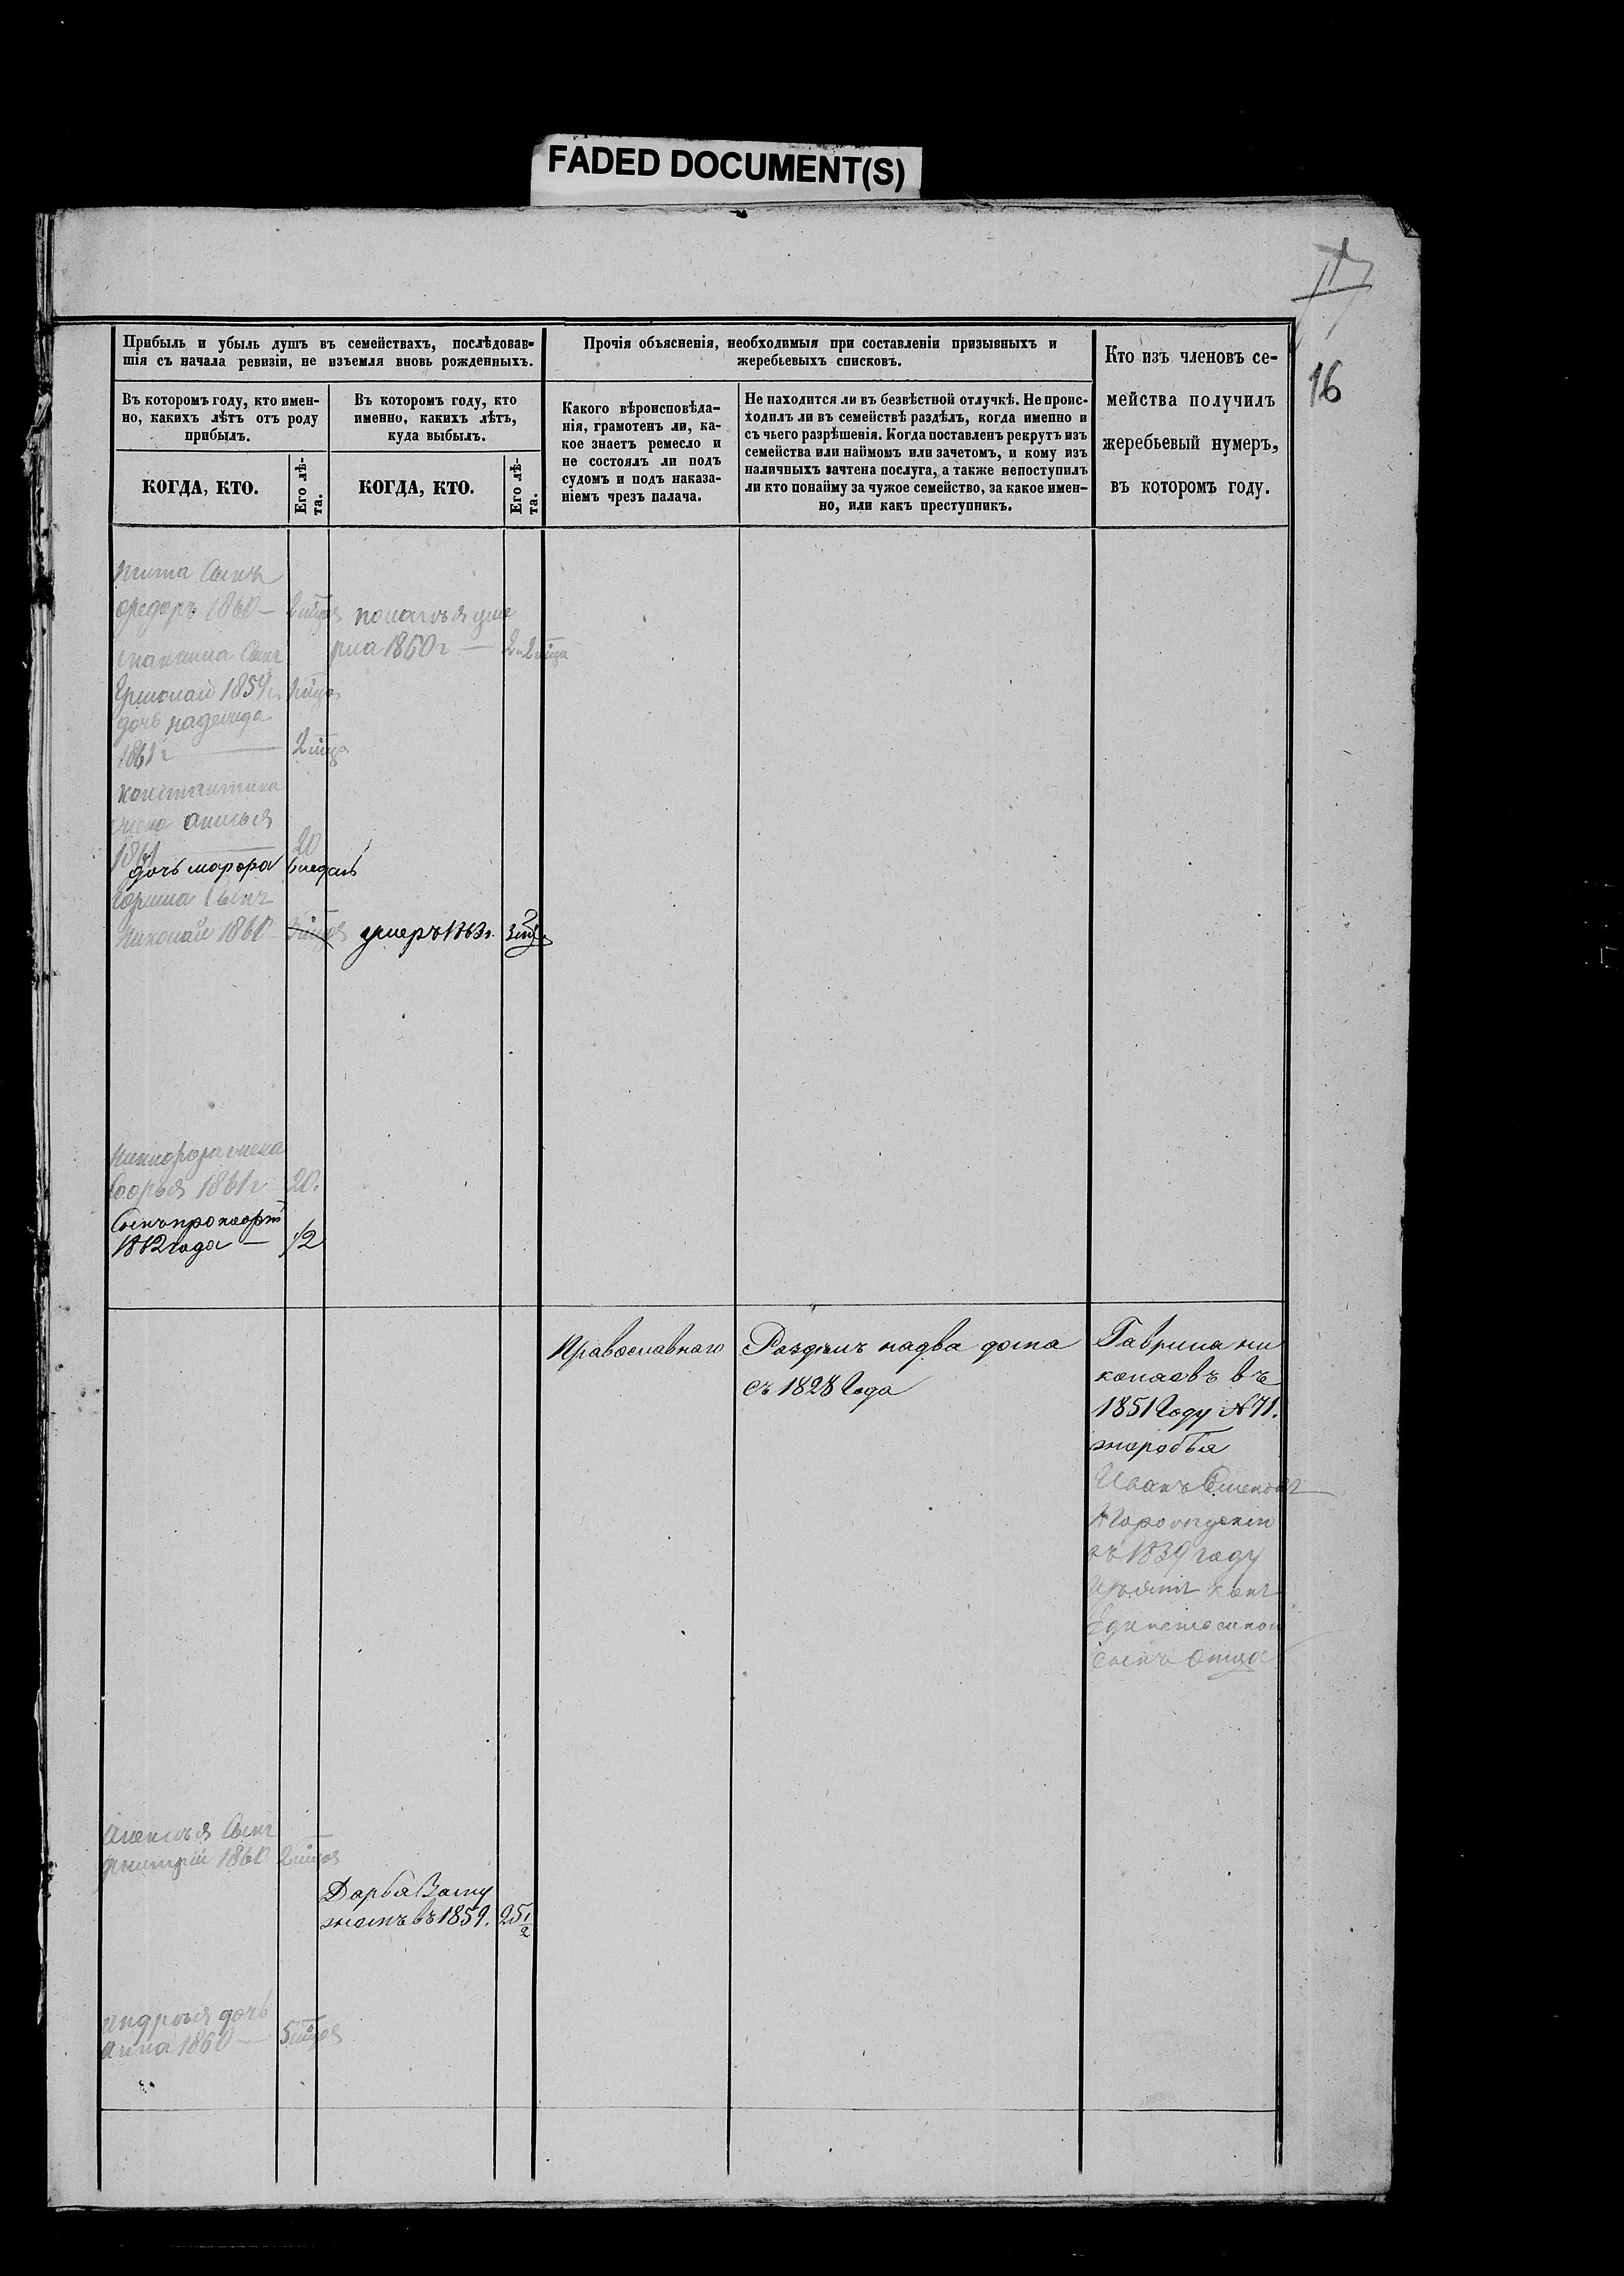 FADED DOCUMENT(S)
17
16
Прибыль и убыль душъ въ семействахъ, послѣдовав-
шія съ начала ревизіи, не изъемля вновь рожденныхъ.
Прочія объясненія, необходимыя при составленіи призывныхъ и
жеребьевыхъ списковъ.
Кто изъ членовъ се-
мейства получилъ
жеребьевый нумеръ,
въ которомъ году.
Въ которомъ году, кто имен-
но, какихъ лѣтъ отъ роду
прибылъ.
Въ которомъ году, кто
именно, какихъ лѣтъ,
куда выбылъ.
Какого вѣроисповѣда-
нія, грамотенъ ли, ка-
кое знаетъ ремесло и
не состоялъ ли подъ
судомъ и подъ наказа-
ніемъ чрезъ палача.
Не находится ли въ безвѣстной отлучкѣ. Не проис-
ходилъ ли въ семействѣ раздѣлъ, когда именно и
съ чьего разрѣшенія. Когда поставленъ рекрутъ изъ
семейства или наймомъ или зачетомъ, и кому изъ
наличныхъ зачтена послуга, а также непоступилъ
ли кто понайму за чужое семейство, за какое имен-
но, или какъ преступникъ.
КОГДА, КТО.
Его лѣ-
та.
КОГДА, КТО.
Его лѣ-
та.
Сынъ
Федоръ 1860 —
уме
рла 1860 г —
Сынъ
1859 г.
дочь надежда
1861 г — 2 мца
константина
жена анисья
1861 — 20
дочь марфа 6 недель
Сынъ
николай 1860 умеръ 1863 г.
никифора жена
1861 г 20.
Сынъ
1862 года — 1/2
Православнаго
Раздѣлъ надва дома
съ 1828 Года
Гаврила ни
колаевъ въ
1851 Году №71.
жеребья
Иванъ
въ 1839 году
Сынъ Отца
алексѣя Сынъ
дмитрій 1860 2 мца
Дарья Заму
жемъ въ 1859. 25 1/2
андрѣя дочь
анна 1860 — 5 мцов